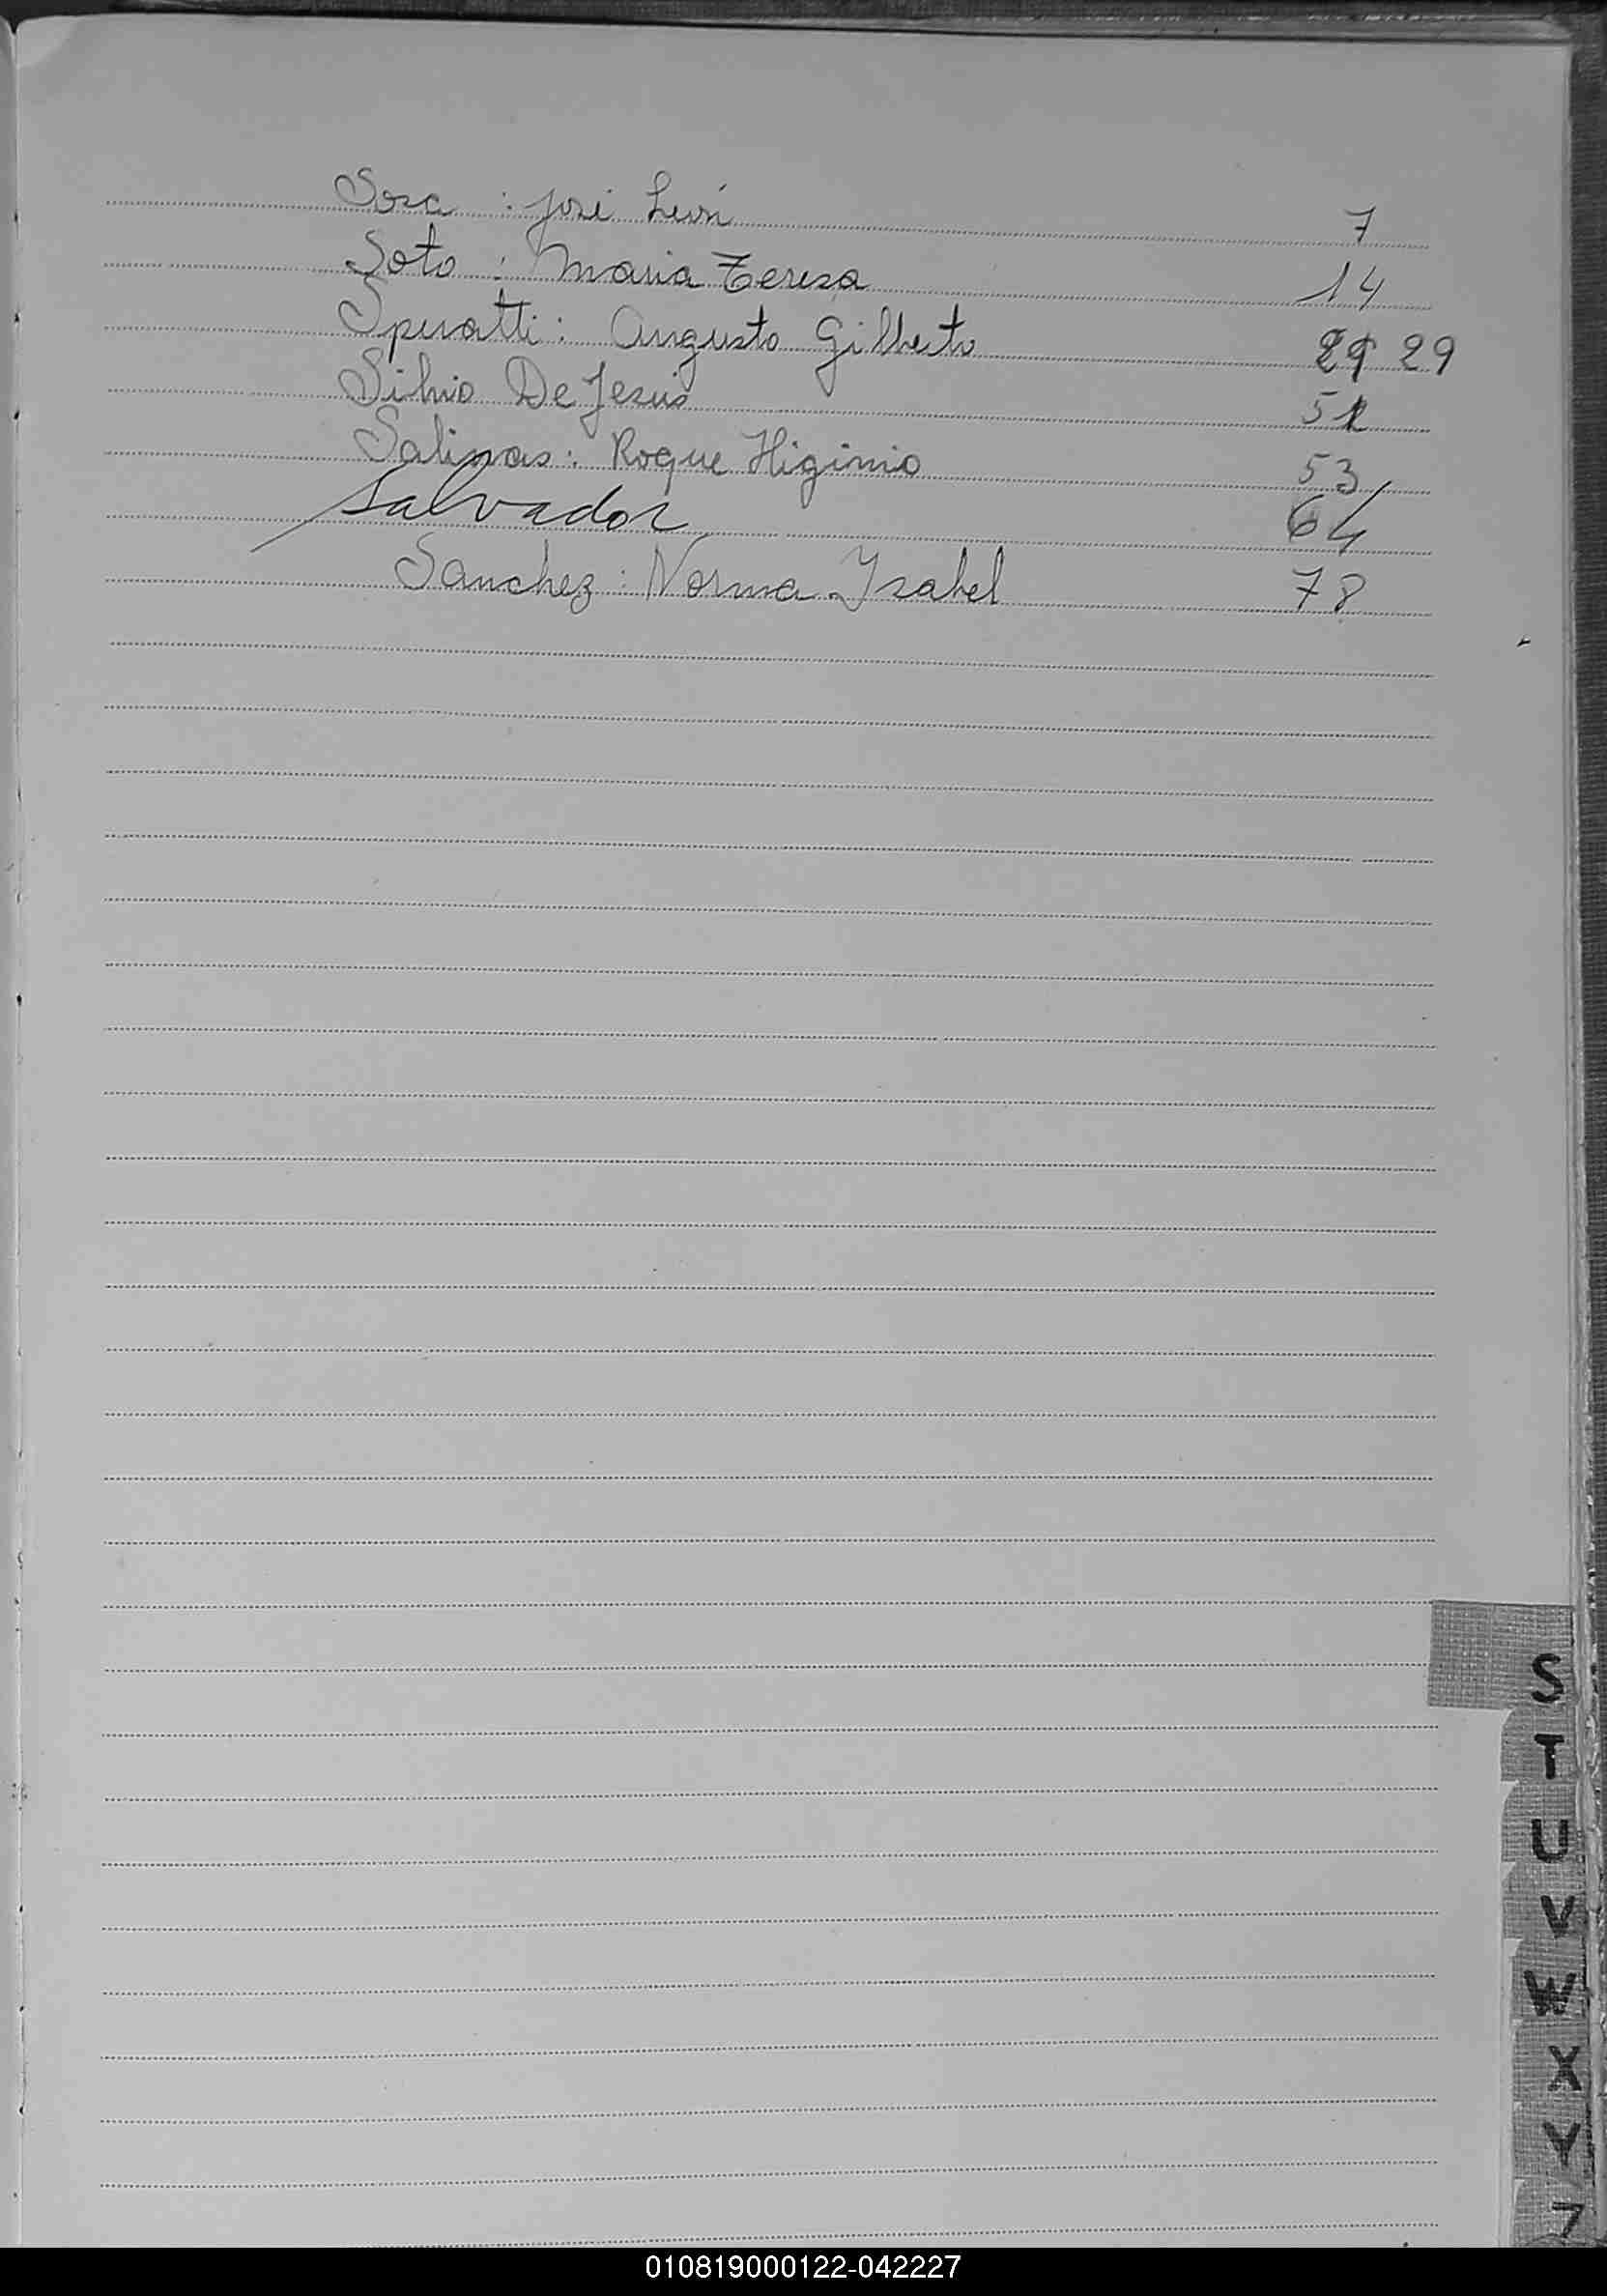 Sosa : José León 7
Soto : Maria Teresa 14
Speratti : Augusto Gilberto 29 29
Silvio De Jesus 52
Salinas : Roque Higinio 53
Salvador 64
Sanchez : Norma Ysabel 78
S
T
U
V
W
X
Y
Z
010819000122-042227